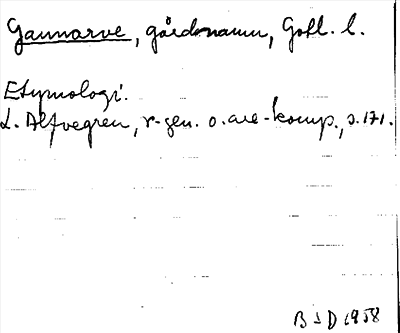 Gannarve, gårdsnamn, Gotl. l.
Etymologi.
L. Alfvegren, r-gen. o. are-komp., s. 171.
B J D 1958